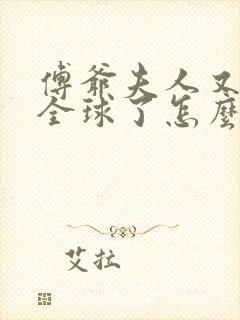 傅爺夫人又
全球了怎麼
艾拉